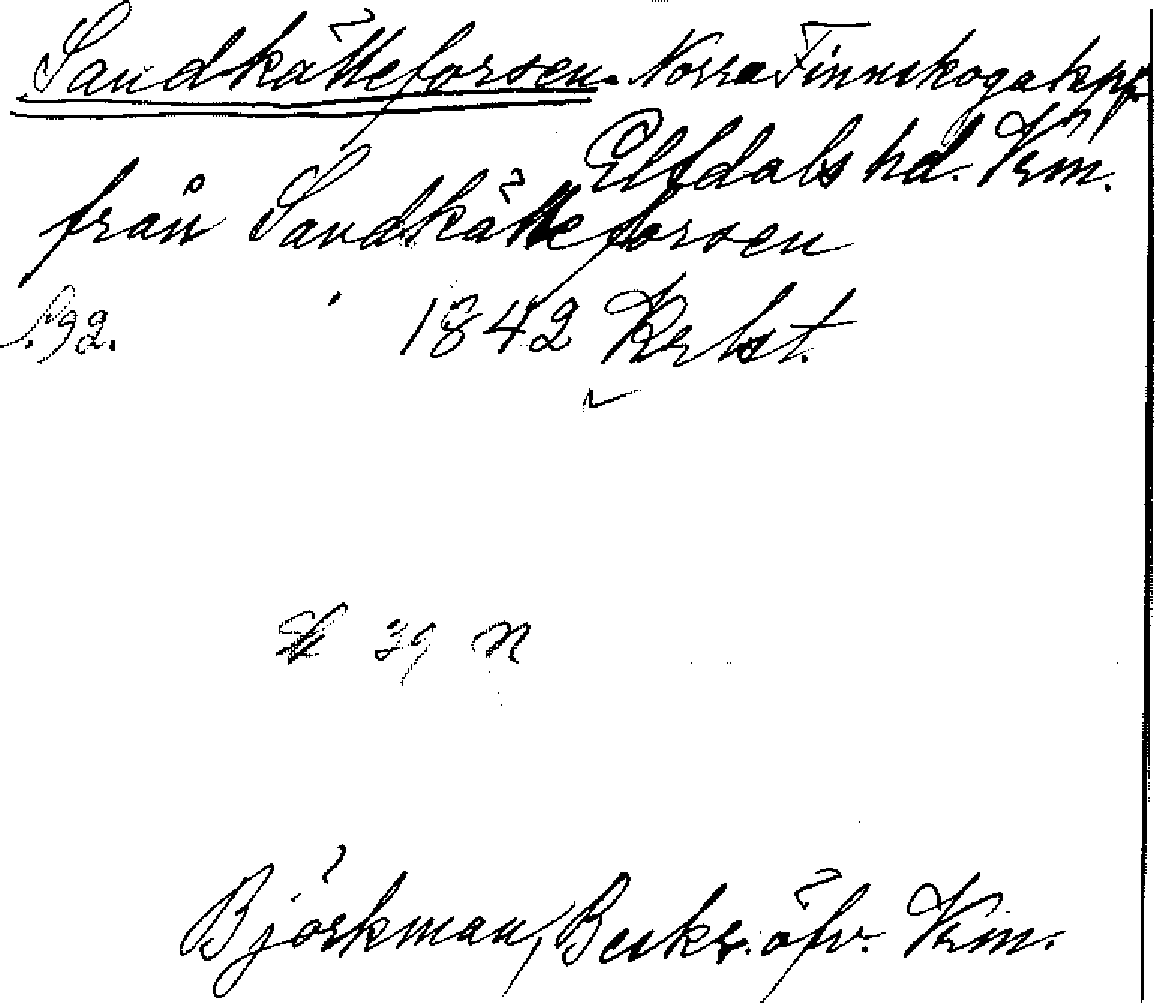 Sandkätteforsen. Norra Finnskoga kpf.
Elfdals hd. Vrm.
från Sandkätteforsen
s. 92. 1842 Krbst.
39 N
Björkman, Beskr. öfv. Vrm.